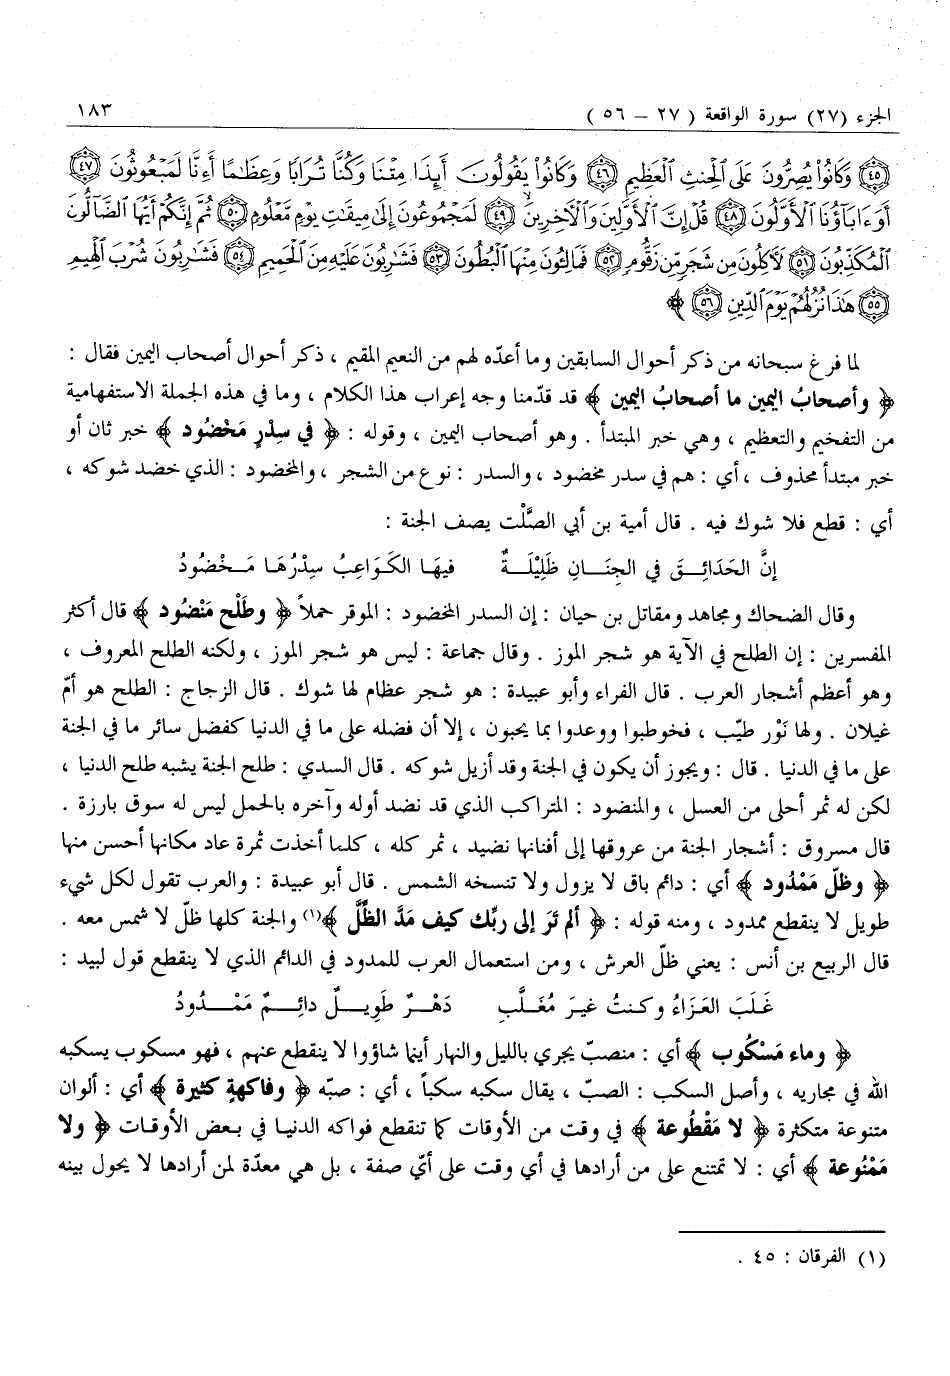 الجزء (٢٧) سورة الواقعة ( ٢٧ – ٥٦ ) ١٨٣
٤٥ وَكَانُواْ يُصِرُّونَ عَلَى ٱلْحِنثِ ٱلْعَظِيمِ ٤٦ وَكَانُواْ يَقُولُونَ أَئِذَا مِتْنَا وَكُنَّا تُرَابًا وَعِظَٰمًا أَءِنَّا لَمَبْعُوثُونَ ٤٧
أَوَءَابَآؤُنَا ٱلْأَوَّلُونَ ٤٨ قُلْ إِنَّ ٱلْأَوَّلِينَ وَٱلْأَخِرِينَ ٤٩ لَمَجْمُوعُونَ إِلَىٰ مِيقَٰتِ يَوْمٍ مَّعْلُومٍ ٥٠ ثُمَّ إِنَّكُمْ أَيُّهَا ٱلضَّآلُّونَ
ٱلْمُكَذِّبُونَ ٥١ لَأَكِلُونَ مِن شَجَرٍ مِّن زَقُّومٍ ٥٢ فَمَالِئُونَ مِنْهَا ٱلْبُطُونَ ٥٣ فَشَٰرِبُونَ عَلَيْهِ مِنَ ٱلْحَمِيمِ ٥٤ فَشَٰرِبُونَ شُرْبَ ٱلْهِيمِ
٥٥ هَٰذَا نُزُلُهُمْ يَوْمَ ٱلدِّينِ ٥٦ ﴾
لما فرغ سبحانه من ذكر أحوال السابقين وما أعدّه لهم من النعيم المقيم ، ذكر أحوال أصحاب اليمين فقال :
﴿ وأصحابُ اليمين ما أصحابُ اليمين ﴾ قد قدّمنا وجه إعراب هذا الكلام ، وما في هذه الجملة الاستفهامية
من التفخيم والتعظيم ، وهي خبر المبتدأ . وهو أصحاب اليمين ، وقوله : ﴿ في سِدْرٍ مَخْضُود ﴾ خبر ثان أو
خبر مبتدأ محذوف ، أي : هم في سدر مخضود ، والسدر : نوع من الشجر ، والمخضود : الذي خضد شوكه ،
أي : قطع فلا شوك فيه . قال أمية بن أبي الصَّلْت يصف الجنة :
إنَّ الحَدَائِـقَ في الجِنَـانِ ظَلِيْلَـةٌ فيهَا الكَوَاعِبُ سِدْرُهَا مَـخْضُودُ
وقال الضحاك ومجاهد ومقاتل بن حيان : إن السدر المخضود : الموقر حملاً ﴿ وطَلْح مَنْضُود ﴾ قال أكثر
المفسرين : إن الطلح في الآية هو شجر الموز . وقال جماعة : ليس هو شجر الموز ، ولكنه الطلح المعروف ،
وهو أعظم أشجار العرب . قال الفراء وأبو عبيدة : هو شجر عظام لها شوك . قال الزجاج : الطلح هو أمّ
غيلان . ولها نَوْر طيّب ، فخوطبوا ووعدوا بما يحبون ، إلا أن فضله على ما في الدنيا كفضل سائر ما في الجنة
على ما في الدنيا . قال : ويجوز أن يكون في الجنة وقد أزيل شوكه . قال السدي : طلح الجنة يشبه طلح الدنيا ،
لكن له ثمر أحلى من العسل ، والمنضود : المتراكب الذي قد نضد أوله وآخره بالحمل ليس له سوق بارزة .
قال مسروق : أشجار الجنة من عروقها إلى أفنانها نضيد ، ثمر كله ، كلما أخذت ثمرة عاد مكانها أحسن منها
﴿ وظلّ مَمْدُود ﴾ أي : دائم باق لا يزول ولا تنسخه الشمس . قال أبو عبيدة : والعرب تقول لكل شيء
طويل لا ينقطع ممدود ، ومنه قوله : ﴿ ألم تَرَ إلى ربِّك كيف مَدَّ الظِّلَّ ﴾(١) والجنة كلها ظلّ لا شمس معه .
قال الربيع بن أنس : يعني ظلّ العرش ، ومن استعمال العرب للمدود في الدائم الذي لا ينقطع قول لبيد :
غَلَبَ العَزَاءُ وكنتُ غيرَ مُغَلَّبِ دَهْـرٌ طَوِيـلٌ دائِـمٌ مَمْـدُودُ
﴿ وماء مَسْكُوب ﴾ أي : منصبّ يجري بالليل والنهار أينما شاؤوا لا ينقطع عنهم ، فهو مسكوب يسكبه
الله في مجاريه ، وأصل السكب : الصبّ ، يقال سكبه سكباً ، أي : صبّه ﴿ وفاكهةٍ كثيرة ﴾ أي : ألوان
متنوعة متكثرة ﴿ لا مَقْطُوعة ﴾ في وقت من الأوقات كما تنقطع فواكه الدنيا في بعض الأوقات ﴿ ولا
مَمْنُوعة ﴾ أي : لا تمتنع على من أرادها في أي وقت على أيّ صفة ، بل هي معدّة لمن أرادها لا يحول بينه
(١) الفرقان : ٤٥ .